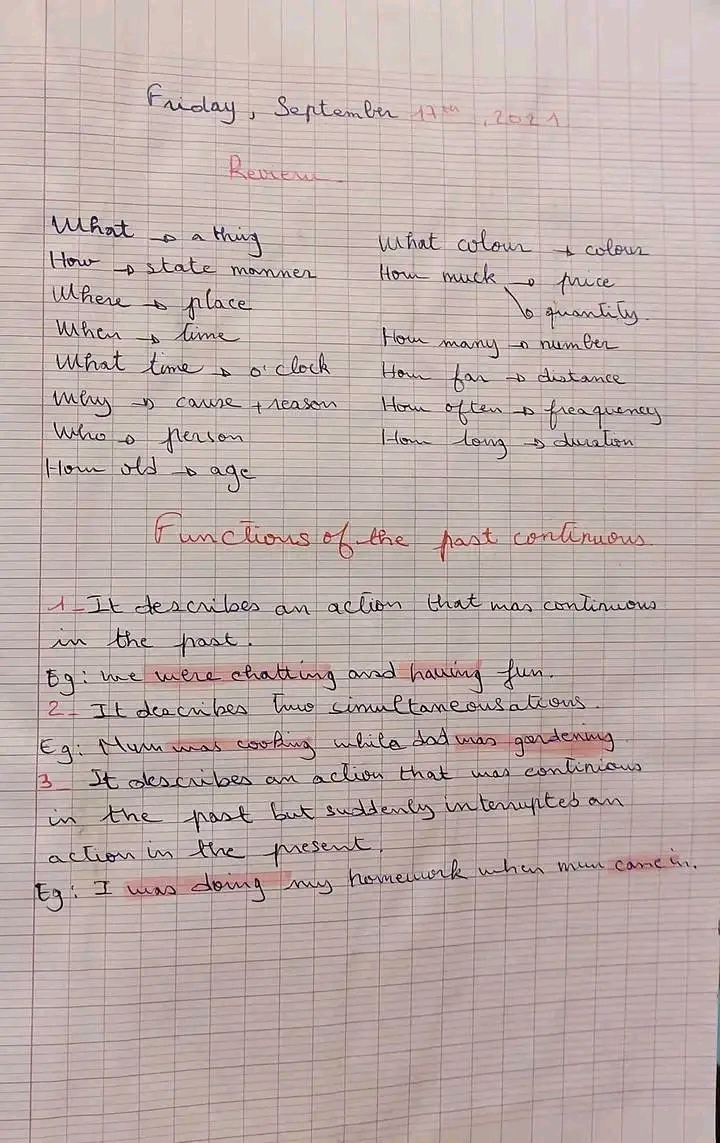 Friday, September 17th, 2021
Review
What → a thing
How → state manner
Where → place
When → time
What time → o'clock
Why → cause + reason
Who → person
How old → age
What colour → colour
How muck → price
→ quantity.
How many → number
How far → distance
How often → freaquency
How long → duration
Functions of the past continuous
1_ It describes an action that was continuous
in the past.
Eg: we were chatting and having fun.
2_ It describes two simultaneousations.
Eg: Mum was cooking while dad was gardening
3_ It describes an action that was continious
in the past but suddenly interrupted an
action in the present.
Eg: I was doing my homework when mum came in.